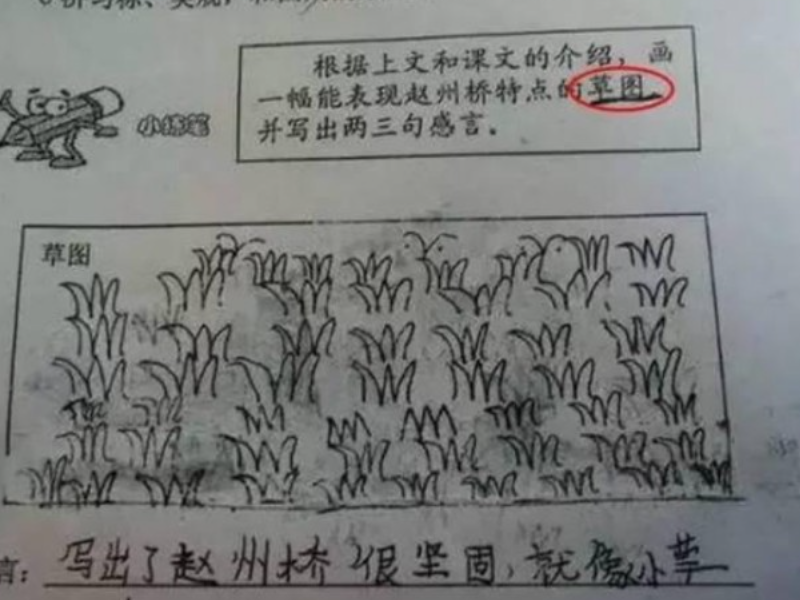 根据上文和课文的介绍，画
一幅能表现赵州桥特点的草图，
并写出两三句感言。
小练笔
草图
言：写出了赵州桥很坚固，就像小草一